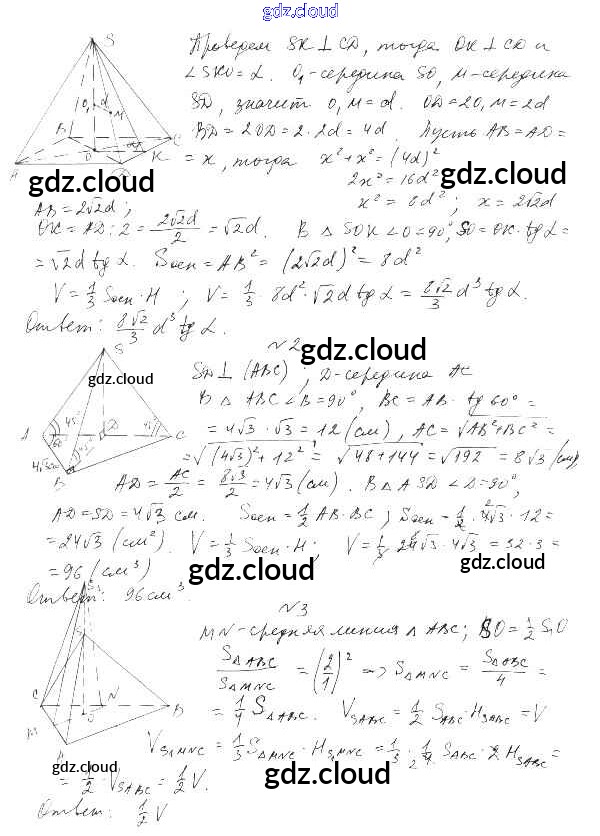 gdz.cloud
Проведем SK ⊥ CD, тогда OK ⊥ CD и
∠SKO = α. O₁-середина SO, M-середина
SD, значит O₁M = d. OD = 2O₁M = 2d
BD = 2OD = 2·2d = 4d. Пусть AB = AD =
= x, тогда x² + x² = (4d)²
2x² = 16d²
x² = 8d²; x = 2√2d
gdz.cloud
gdz.cloud
AB = 2√2d;
OK = AD : 2 = 2√2d/2 = √2d. В △SOK ∠O = 90°, SO = OK·tg α =
= √2d tg α. Sосн = AB² = (2√2d)² = 8d²
V = 1/3 Sосн·H; V = 1/3·8d²·√2d tg α = 8√2/3 d³ tg α.
Ответ: 8√2/3 d³ tg α.
№2
gdz.cloud
gdz.cloud
SD ⊥ (ABC), D-середина AC
В △ABC ∠B = 90°, BC = AB·tg 60° =
= 4√3·√3 = 12 (см), AC = √AB²+BC² =
= √(4√3)²+12² = √48+144 = √192 = 8√3 (см)
AD = AC/2 = 8√3/2 = 4√3 (см). В △ASD ∠D = 90°,
AD = SD = 4√3 см. Sосн = 1/2 AB·BC; Sосн = 1/2·4√3·12 =
= 24√3 (см²). V = 1/3 Sосн·H; V = 1/3·24√3·4√3 = 32·3 =
= 96 (см³)
gdz.cloud
gdz.cloud
Ответ: 96 см³.
№3
MN-средняя линия △ABC; SO = 1/2 S₁O
S△ABC/S△MNC = (2/1)² => S△MNC = S△ABC/4 =
= 1/4 S△ABC. VSABC = 1/3 S△ABC·HSABC = V
VS₁MNC = 1/3 S△MNC·HS₁MNC = 1/3·1/4 S△ABC·2HSABC =
= 1/2·VSABC = 1/2 V.
gdz.cloud
gdz.cloud
Ответ: 1/2 V